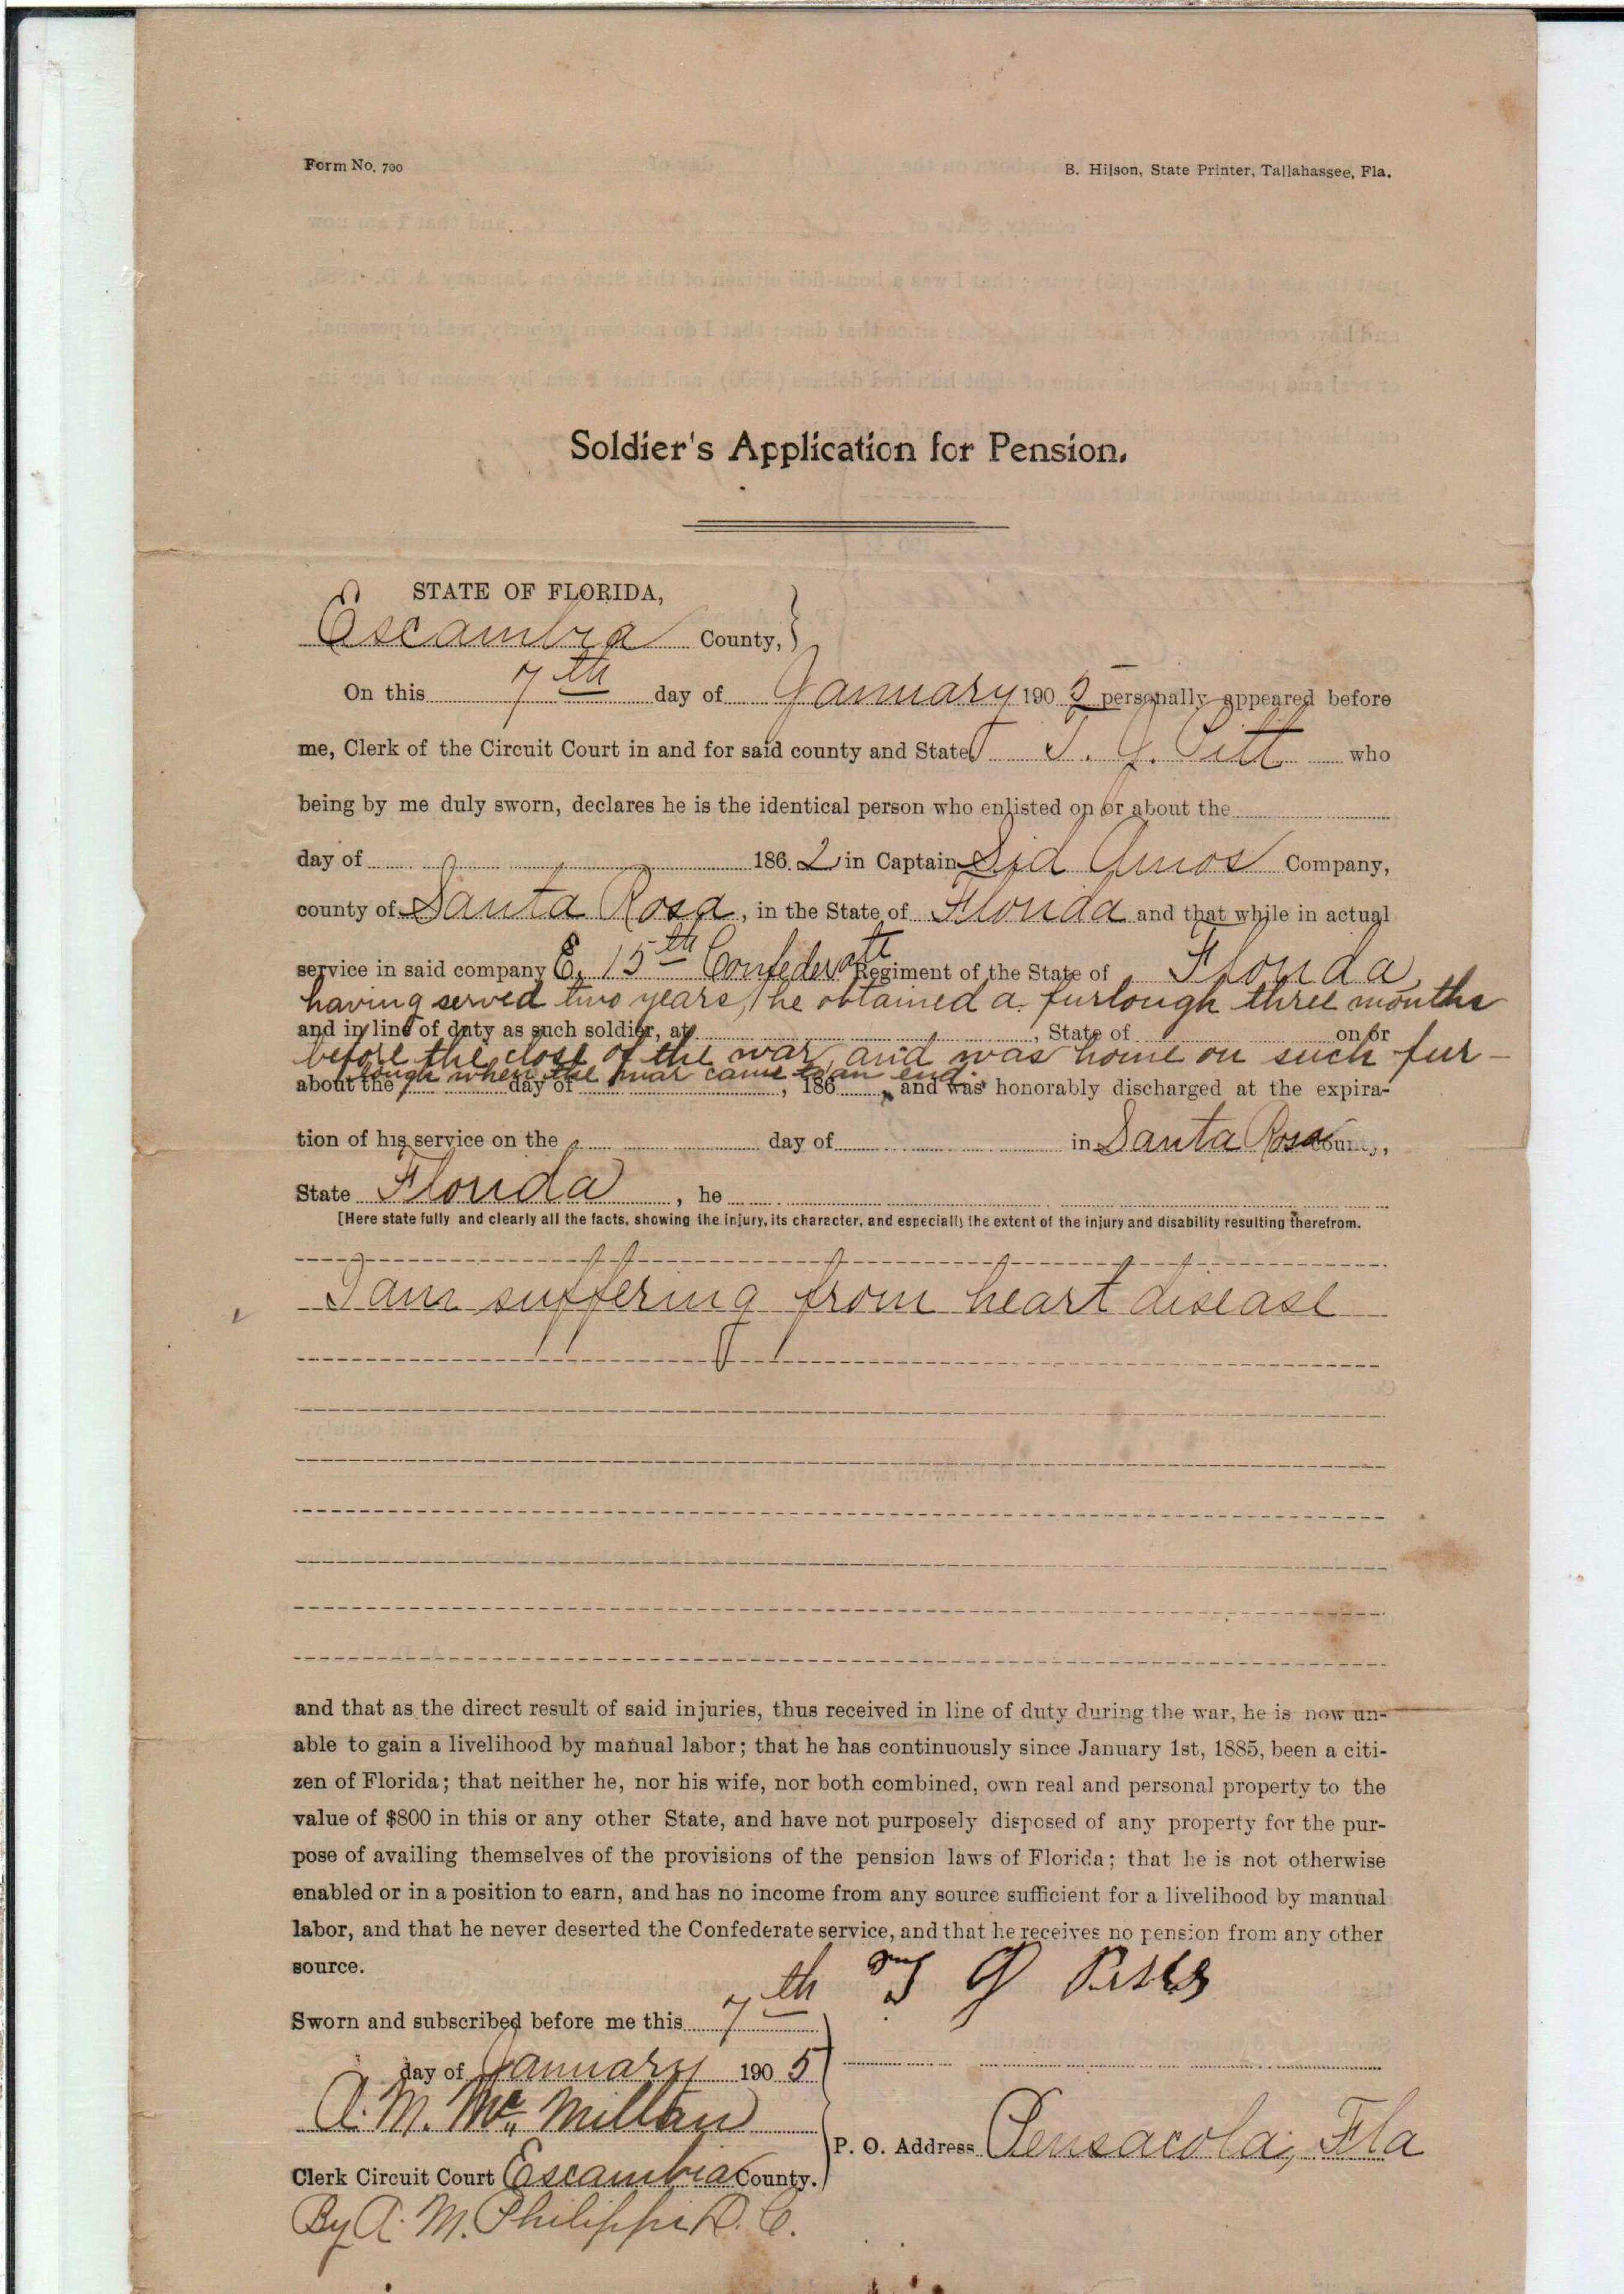 Form No. 700
B. Hilson, State Printer, Tallahassee, Fla.
Soldier's Application for Pension.
STATE OF FLORIDA,
Escambia County,
On this 7th day of January 1905 personally appeared before
me, Clerk of the Circuit Court in and for said county and State T. J. Pitt who
being by me duly sworn, declares he is the identical person who enlisted on or about the
day of 1862 in Captain Sid Amos Company,
county of Santa Rosa, in the State of Florida and that while in actual
service in said company E. 15th Confederate Regiment of the State of Florida
having served two years, he obtained a furlough three months
and in line of duty as such soldier, at , State of on or
before the close of the war, and was home on such fur-
lough when the war came to an end.
about the day of , 186 , and was honorably discharged at the expira-
tion of his service on the day of in Santa Rosa County,
State Florida, he
[Here state fully and clearly all the facts, showing the injury, its character, and especially the extent of the injury and disability resulting therefrom.
I am suffering from heart disease
and that as the direct result of said injuries, thus received in line of duty during the war, he is now un-
able to gain a livelihood by manual labor; that he has continuously since January 1st, 1885, been a citi-
zen of Florida; that neither he, nor his wife, nor both combined, own real and personal property to the
value of $800 in this or any other State, and have not purposely disposed of any property for the pur-
pose of availing themselves of the provisions of the pension laws of Florida; that he is not otherwise
enabled or in a position to earn, and has no income from any source sufficient for a livelihood by manual
labor, and that he never deserted the Confederate service, and that he receives no pension from any other
source.
Sworn and subscribed before me this 7th
day of January 1905
A. M. McMillan
P. O. Address Pensacola, Fla
Clerk Circuit Court Escambia County.
By A. M. Philippi D. C.